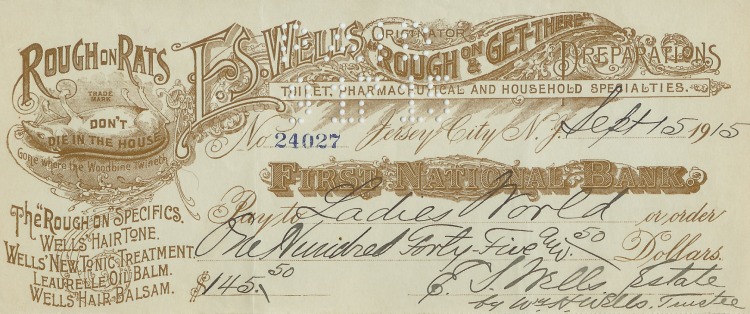 ROUGH ON RATS
TRADE MARK
DON'T
DIE IN THE HOUSE
Gone where the Woodbine Twineth
The "ROUGH ON" SPECIFICS.
WELLS' HAIR TONE.
WELLS' NEW TONIC-TREATMENT
LEAURELLE OIL BALM.
WELLS' HAIR BALSAM.
E.S. WELLS,
ORIGINATOR
"ROUGH ON" & "GET-THERE"
PREPARATIONS
TOILET, PHARMACEUTICAL AND HOUSEHOLD SPECIALTIES.
No. 24027 Jersey City, N.J. Sept 15 1915
FIRST NATIONAL BANK.
Pay to Ladies World or order
One Hundred Forty-Five and 50 Dollars.
$145.50
E. S. Wells Estate
by Wm H. Wells, Trustee